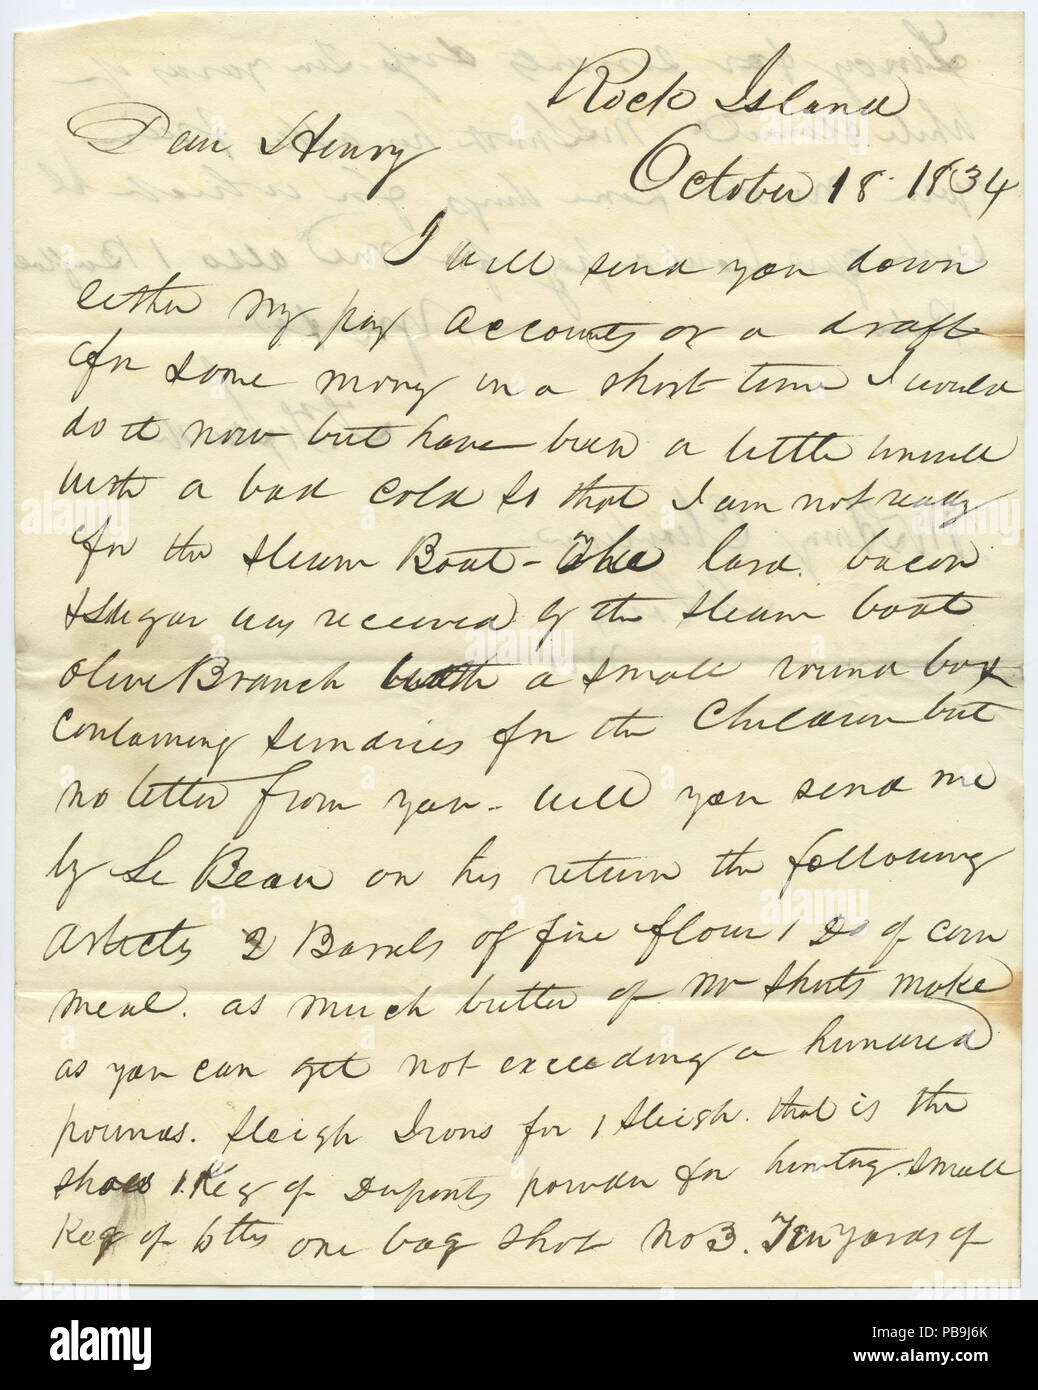 Rock Island
Dear Henry
October 18. 1834
I will send you down
either my pay accounts or a draft
for some money in a short time I would
do it now but have been a little unwell
with a bad cold so that I am not ready
for the Steam Boat - The lard. bacon
& sugar was received by the steam boat
Olive Branch with a small round box
containing sundries for the Children but
no letter from you - will you send me
by Le Beau on his return the following
articles 2 Barrels of fine flour 1 Do of corn
meal. as much butter of Mr Shorts make
as you can get not exceeding a hundred
pounds. Sleigh Irons for 1 Sleigh. that is the
shoes 1. Keg of Duponts powder for hunting. small
Keg of 6 lbs one bag shot No 3. Ten yards of
alamy
alamy
alamy
alamy
alamy
alamy
Image ID: PB9J6K
www.alamy.com